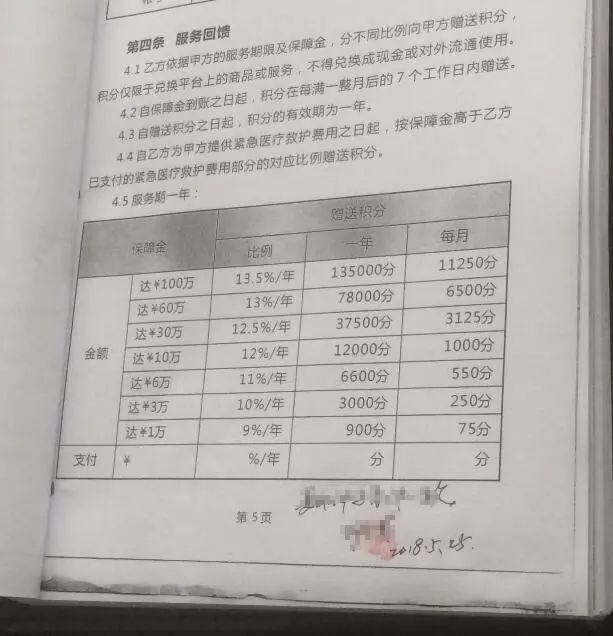 第四条 服务回馈
4.1乙方依据甲方的服务期限及保障金，分不同比例向甲方赠送积分，
积分仅限于兑换平台上的商品或服务，不得兑换成现金或对外流通使用。
4.2自保障金到账之日起，积分在每满一整月后的7个工作日内赠送。
4.3自赠送积分之日起，积分的有效期为一年。
4.4自乙方为甲方提供紧急医疗救护费用之日起，按保障金高于乙方
已支付的紧急医疗救护费用部分的对应比例赠送积分。
4.5服务期一年：
保障金 赠送积分
比例 一年 每月
金额 达¥100万 13.5%/年 135000分 11250分
达¥60万 13%/年 78000分 6500分
达¥30万 12.5%/年 37500分 3125分
达¥10万 12%/年 12000分 1000分
达¥6万 11%/年 6600分 550分
达¥3万 10%/年 3000分 250分
达¥1万 9%/年 900分 75分
支付 ¥ %/年 分 分
第5页
2018.5.25.